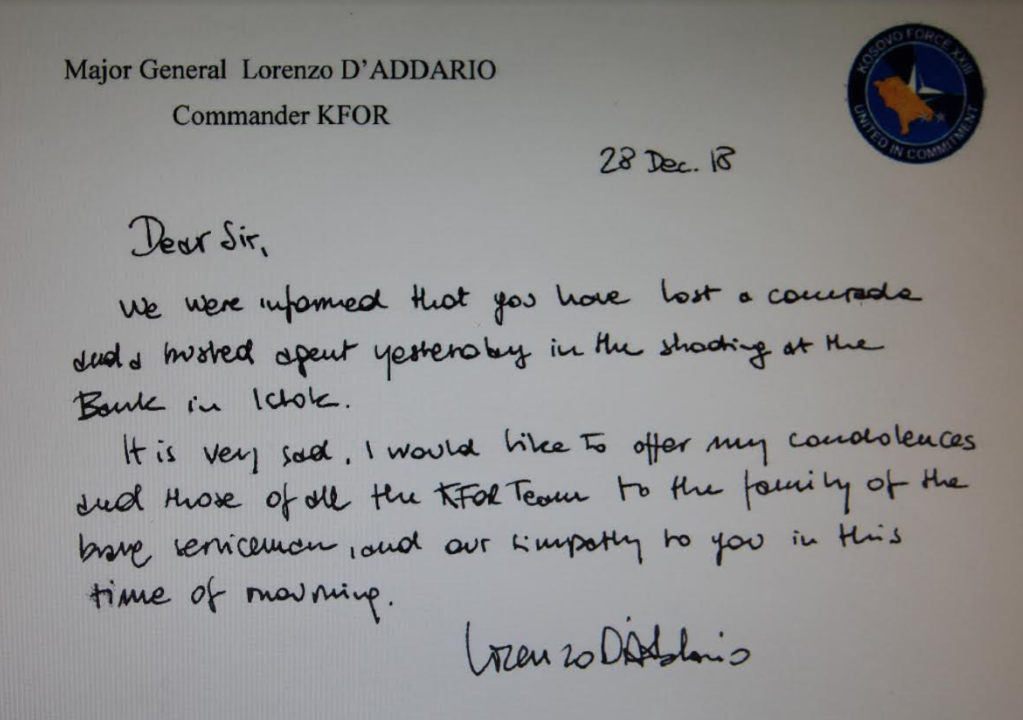 Major General Lorenzo D'ADDARIO
Commander KFOR
KOSOVO FORCE XXIII
UNITED IN COMMITMENT
28 Dec. 18
Dear Sir,
We were informed that you have lost a comrade
and a trusted agent yesterday in the shooting at the
Bank in Istok.
It is very sad. I would like to offer my condolences
and those of all the KFOR Team to the family of the
brave serviceman, and our simpathy to you in this
time of mourning.
Lorenzo D'Addario